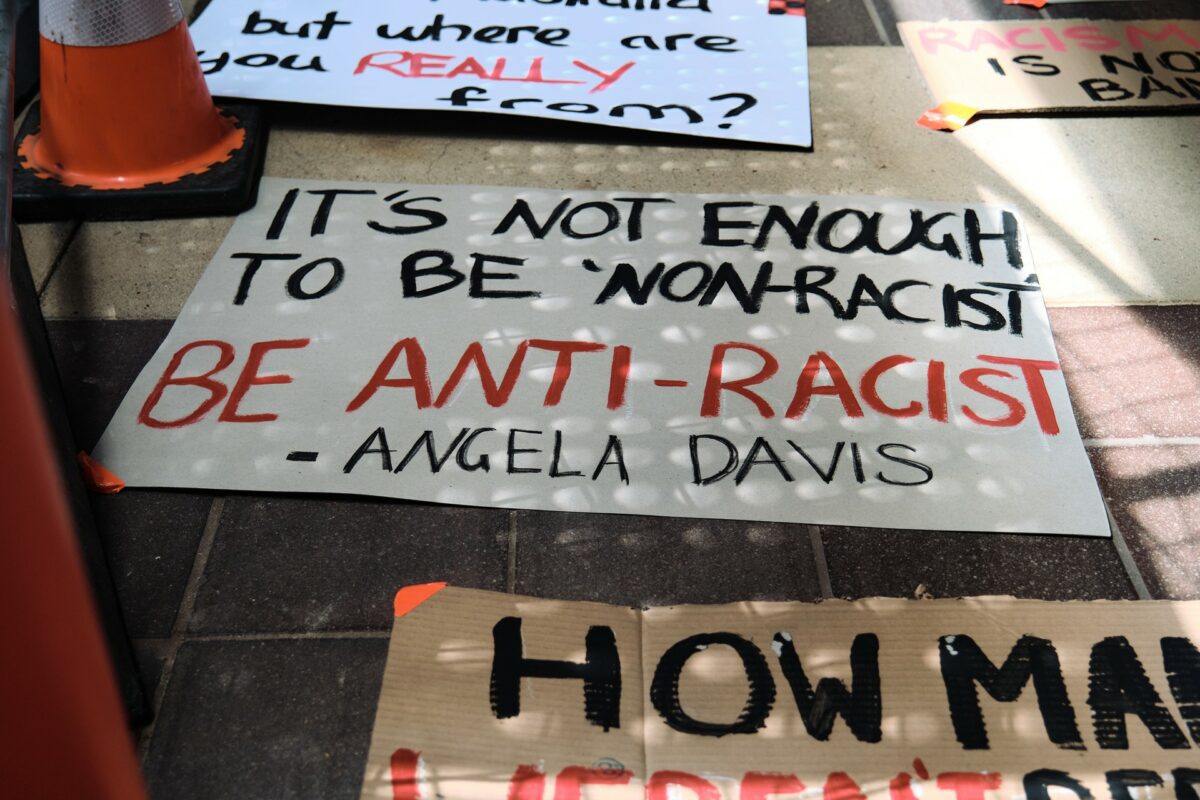 but where are
you REALLY
from?
RACISM
IS
IT'S NOT ENOUGH
TO BE 'NON-RACIST'
BE ANTI-RACIST
- ANGELA DAVIS
HOW
WEREN'T